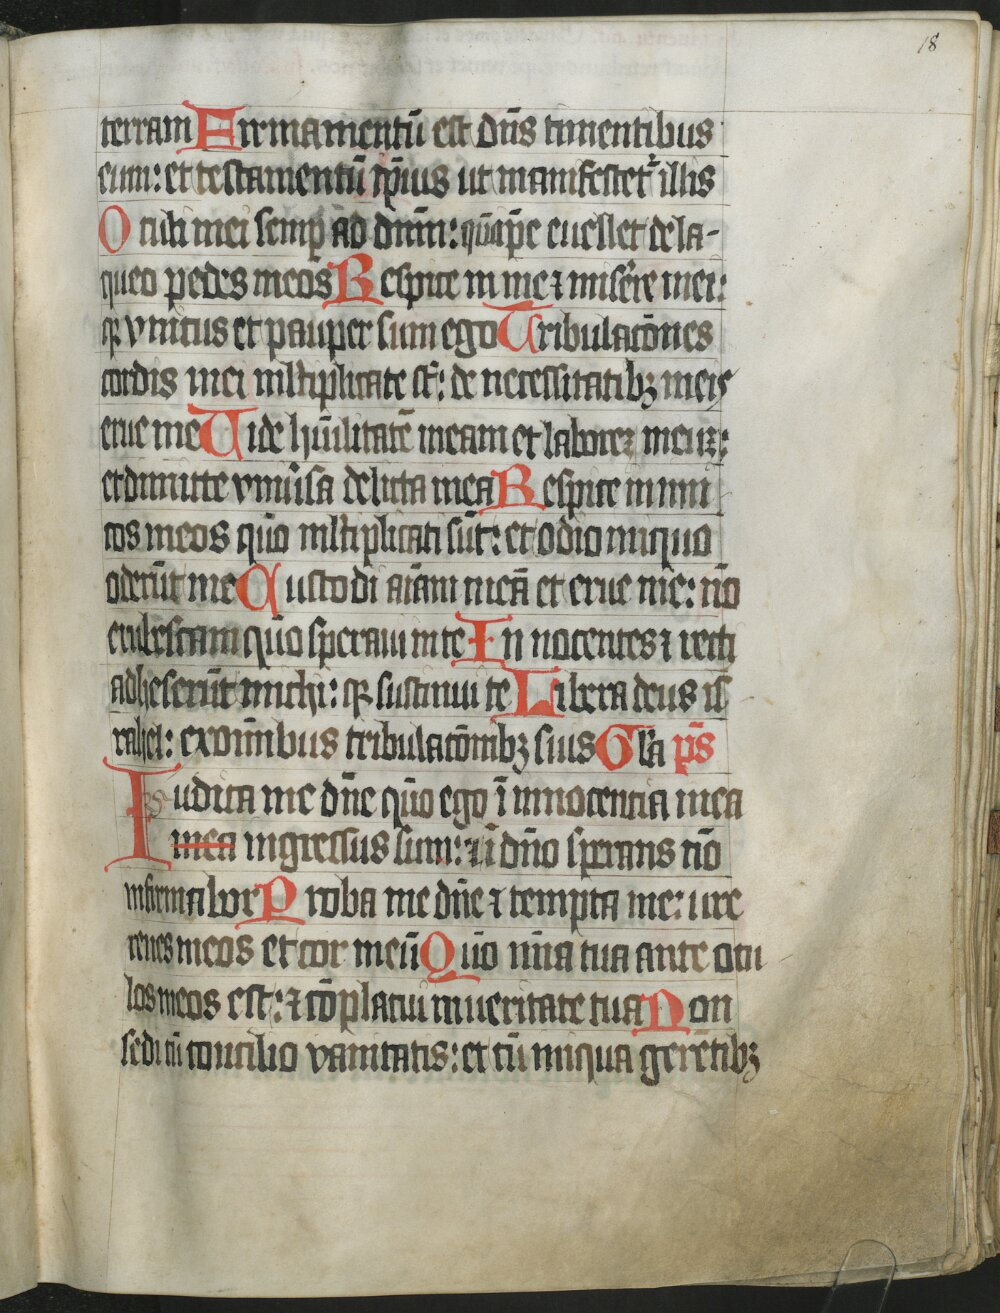 18
terram Firmamentū est dn̄s timentibus
eum: et testamentū ip̄ius ut manifestet᷑ illis
Oculi mei semp̱ ad dnm̄: qm̄ ip̄e euellet de la-
queo pedes meos Respice in me ⁊ miserē mei:
qꝛ vnicus et pauper sum ego Tribulacōnes
cordis mei mltiplicate st̄: de necessitatibꝫ meis
erue me Vide hūilitatē meam et laborēꝫ meuꝫ:
et dimitte vniũsa delicta mea Respice inimi
cos meos qm̄o mltiplicati sūt: et odio iniquo
oderūt me Custodi aīam meā et erue me: nō
erubescam qūo speraui in te Innocentes ⁊ recti
adheserūt michi: qꝛ sustinui te Libera deus is
rahel: ex om̄ibus tribulacōnibꝫ suis Gl̄a p̄s
Iudica me dn̄e qūo ego ī innocentia mea
mea ingressus sum: ⁊ ī dn̄o sperans nō
infirmabor Proba me dn̄e ⁊ tempta me: ure
renes meos et cor meū Qūo mīa tua ante ocu
los meos est: ⁊ cōplacui in ueritate tua Non
sedi cū concilio vanitatis: et cū iniqua gerētibꝫ